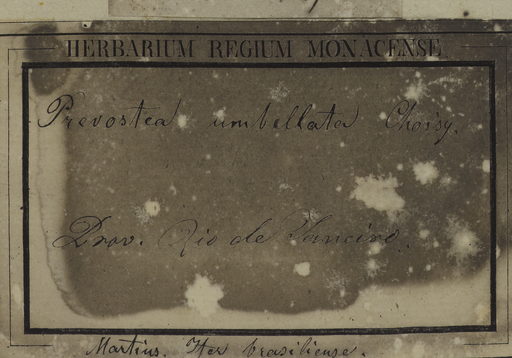 HERBARIUM REGIUM MONACENSE
Prevostea umbellata Choisy.
Prov. Rio de Janeiro.
Martius. Iter brasiliense.